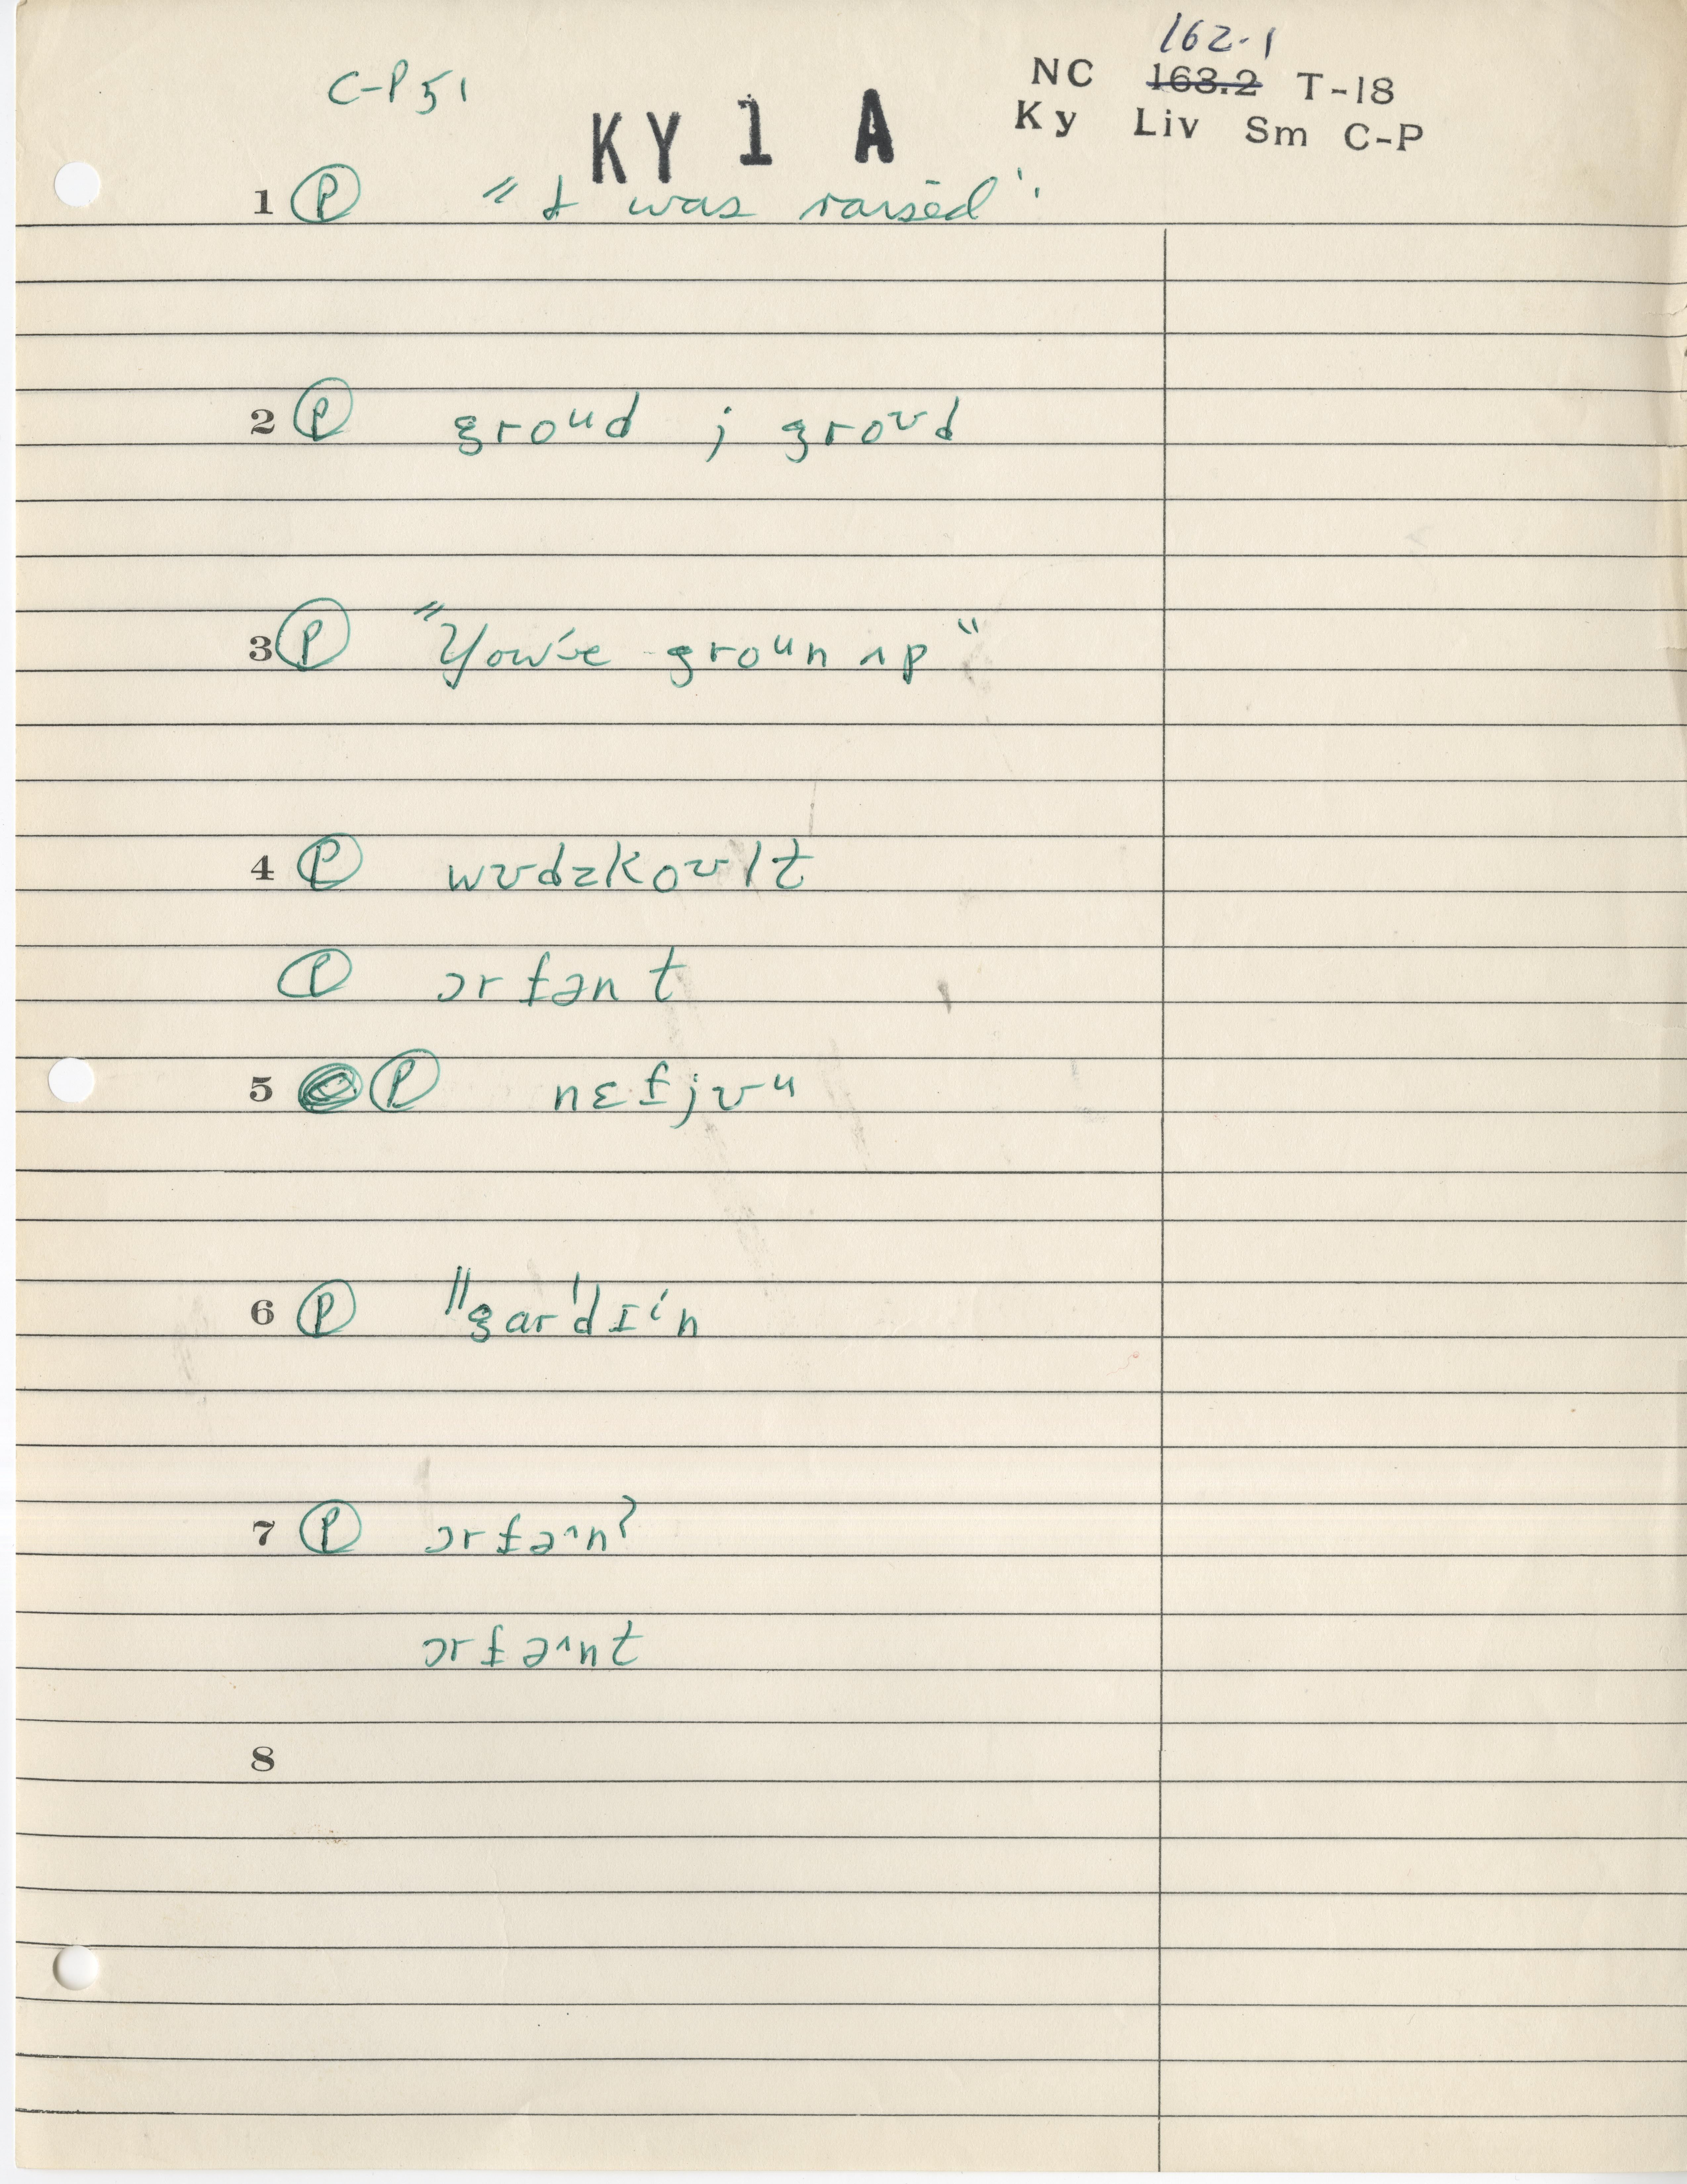 162-1
C-P 51
NC 163.2 T-18
KY 1 A
Ky Liv Sm C-P
1 Ⓟ "I was raised".
2 Ⓟ groᵘd ; groᶹd
3 Ⓟ "You've groᵘn ʌp"
4 Ⓟ wʊdzkoʊlt
Ⓟ ɔrfənt
5 Ⓟ nɛfjʊᵘ
6 Ⓟ "gar'dɪⁱn
7 Ⓟ ɔrfəᶺn?
ɔrfəᶺnt
8